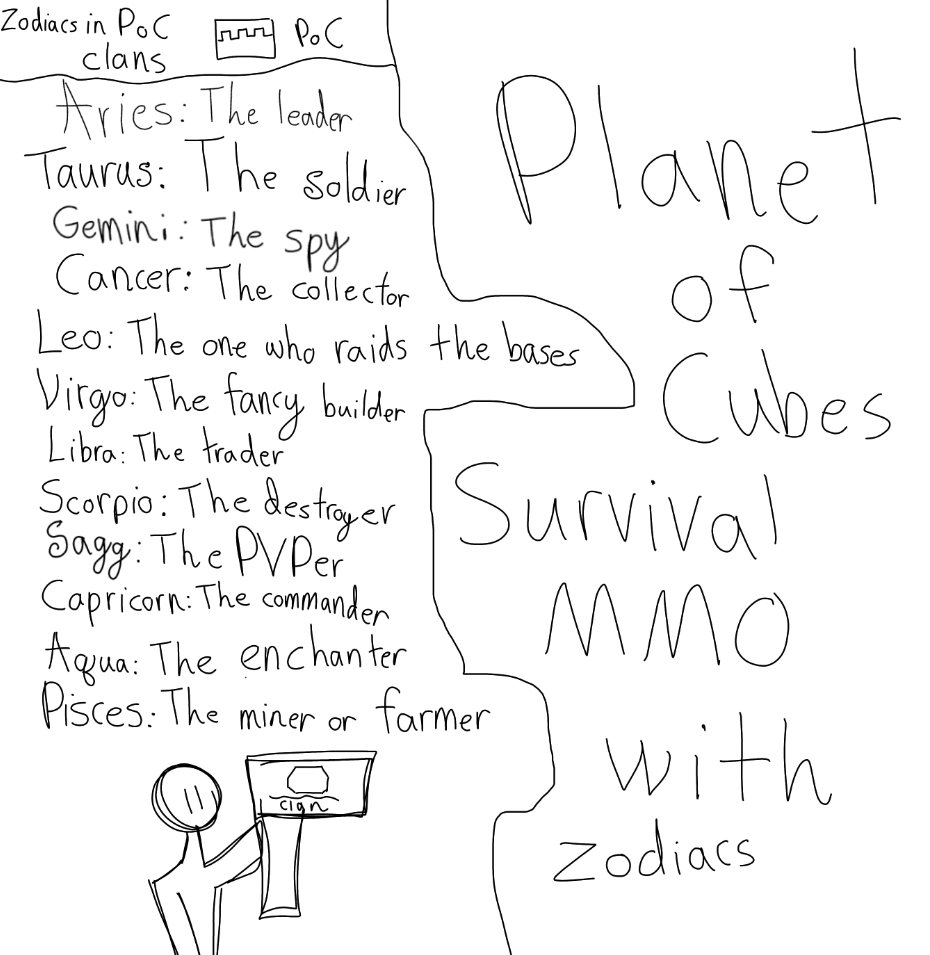 Zodiacs in PoC
clans
PoC
Aries: The leader
Taurus: The soldier
Gemini: The spy
Cancer: The collector
Leo: The one who raids the bases
Virgo: The fancy builder
Libra: The trader
Scorpio: The destroyer
Sagg: The PVPer
Capricorn: The commander
Aqua: The enchanter
Pisces: The miner or farmer
clan
Planet
of
Cubes
Survival
MMO
with
Zodiacs